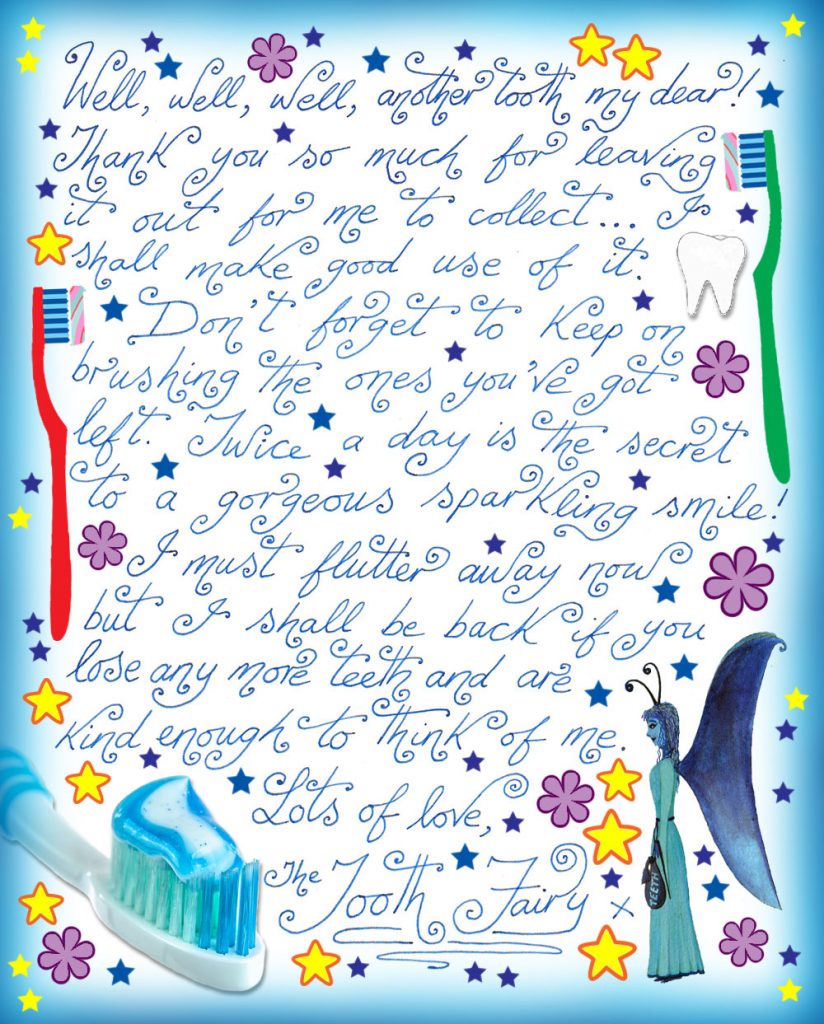 Well, well, well, another tooth my dear!
Thank you so much for leaving
it out for me to collect... I
shall make good use of it.
Don't forget to keep on
brushing the ones you've got
left. Twice a day is the secret
to a gorgeous sparkling smile!
I must flutter away now
but I shall be back if you
lose any more teeth and are
kind enough to think of me.
Lots of love,
The Tooth Fairy x
TEETH